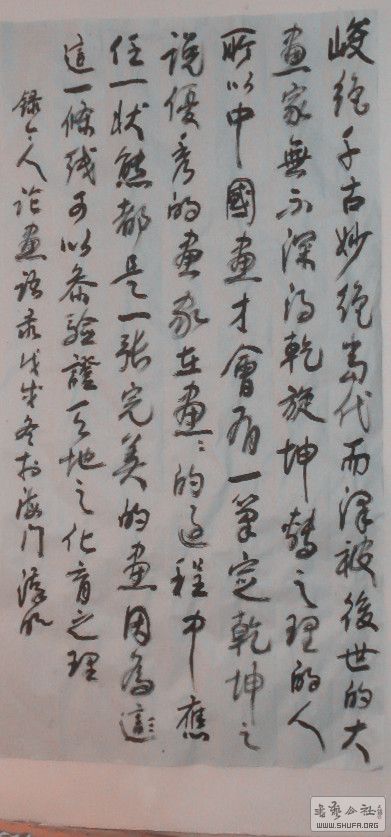 峻绝千古妙绝当代而泽被後世的大
画家無不深得乾旋坤转之理的人
所以中國画才會有一笔定乾坤之
说優秀的画家在画画的过程中應
任一状態都是一张完美的画因為這
這一條线可以参验證天地之化育之理
录人论画语录戊戌冬於海门
書法公社
WWW.SHUFA.ORG